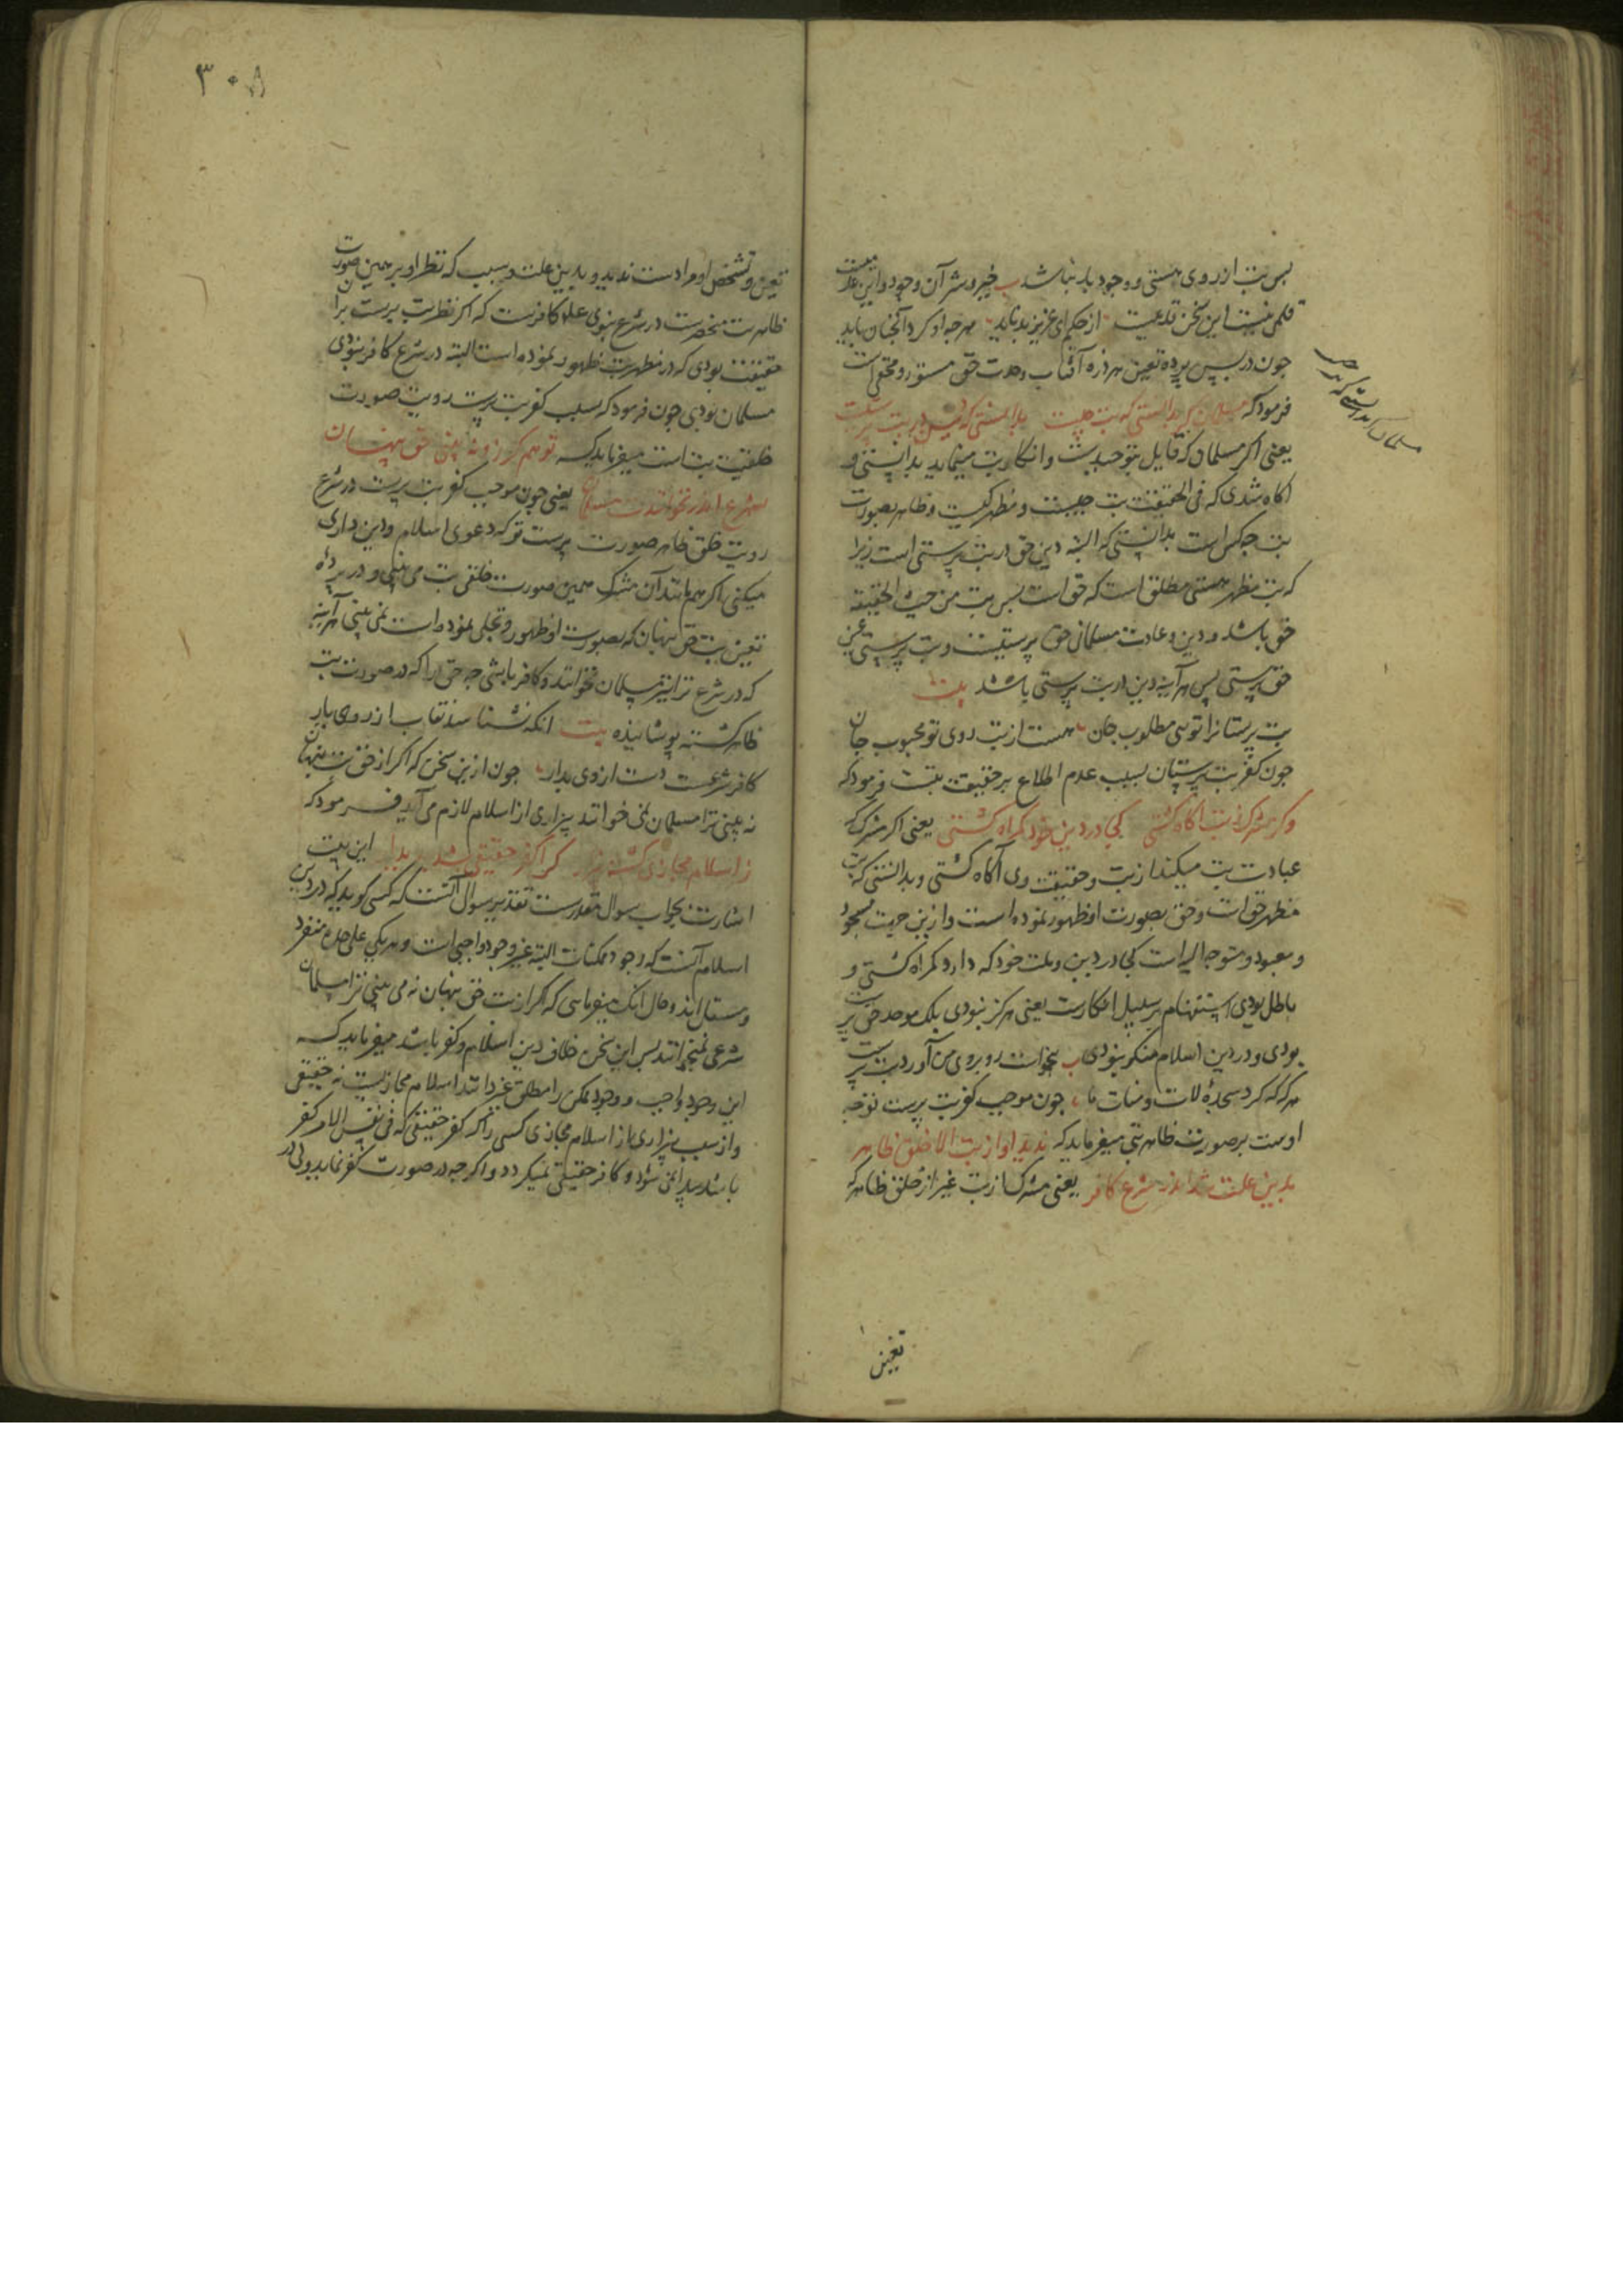 پس بت از روی هستی و وجود بد نباشد خیر و شر آن وجود و این عالمیست
قلمی نیست این سخن قدیمیست از حکیم ای عزیز بد ناید هرچه او کرد آنچنان باید
چون در پس پرده تعین هر ذره آفتاب وحدت حق مستور و مختفی است
فرمود که مسلمان گر بدانستی که بت چیست بدانستی که دین در بت پرستیست
یعنی اگر مسلمان که قایل بتوحیدست و انکار بت مینماید بدانستی و
اکاه شدی که فی الحقیقت بت چیست و مظهر کیست و ظاهر بصورت
بت چه کس است بدانستی که البته دین حق در بت پرستی است زیرا
که بت مظهر هستی مطلق است که حق است پس بت من حیث الحقیقه
حق باشد و دین و عادت مسلمانی حق پرستیست و بت پرستی عین
حق پرستی پس هر آینه دین در بت پرستی باشد بیت
بت پرستانرا توئی مطلوب جان هست از بت روی تو محبوب جان
چون کفر بت پرستان بسبب عدم اطلاع بر حقیقت بتست فرمود که
وگر مشرک ز بت اکاه گشتی کجا در دین خود گمراه گشتی یعنی اگر مشرک که
عبادت بت میکند از بت و حقیقت وی آگاه گشتی و بدانستی که بت
مظهر حق است و حق بصورت او ظهور نموده است و ازین حیث مسجود
و معبود و متوجه الیه است کجا در دین و ملت خود که دارد گمراه گشتی و
باطل بودی استفهام بر سبیل انکارست یعنی هرگز نبودی بلک موحد حق پرست
بودی و در دین اسلام منکر نبودی بخواست رو بروی من آورد بت پرست
هر که که کرد سجده لات و منات ما چون موجب کفر بت پرست توجه
اوست بر صورت ظاهر بتی میفرماید که ندید او از بت الا خلق ظاهر
بدین علت شد اندر شرع کافر یعنی مشرک از بت غیر از خلق ظاهر که
تعین
مسلمان گر بدانستی که بت چیست
۳۰۸
تعین و تشخص او مرادست ندید و بدین علت و سبب که نظر او بر همین صورت
ظاهر بت منحصرست در شرع نبوی علم کافرست که اگر نظر بت پرست بر آن
حقیقت بودی که در مظهر بت ظهور نموده است البته در شرع کافر نبودی
مسلمان بودی چون فرمود که سبب کفر بت پرست رویت صورت
خلقیت بت است میفرماید که تو هم گر زو نه بینی حق پنهان
بشرع اندر نخوانندت مسلمان یعنی چون موجب کفر بت پرست در شرع
رویت خلق ظاهر صورت پرست تو که دعوی اسلام و دین داری
میکنی اگر هم مانند آن مشرک همین صورت خلقی بت می بینی و در پرده
تعین بت حق پنهان که بصورت او ظهور و تجلی نموده است نمی بینی هر آینه
که در شرع ترا نیز مسلمان نخوانند و کافر باشی چه حق را که در صورت بت
ظاهر گشته پوشانیده بیت انکه نشناسد نقاب از روی یار
کافر شرعست دست از وی بدار چون ازین سخن که اگر از حق بت پنهان
نه بینی ترا مسلمان نمی خوانند بیزاری از اسلام لازم می آید فرمود که
ز اسلام مجازی گشته بیزار کرا کفر حقیقی شد پدیدار این بیت
اشارت بجواب سوال مقدرست تقدیر سوال آنست که کسی گوید که در دین
اسلام آنست که وجود ممکنات البته غیر وجود واجبی است و هر یکی علی حده منفرد
و مستقل اند و حال انک میفرمایی که اگر از بت حق پنهان نه می بینی ترا مسلمان
شرعی نمیخوانند پس این سخن خلاف دین اسلام و کفر باشد میفرماید که
این وجود واجب و وجود ممکن را مطلق غیر دانند اسلام مجازیست نه حقیقی
و از سبب بیزاری از اسلام مجازی کسی را که کفر حقیقی که فی نفس الامر کفر
باشد پیدا نمی شود و کافر حقیقی نمیگردد و اگرچه در صورت کفر نماید ولی در